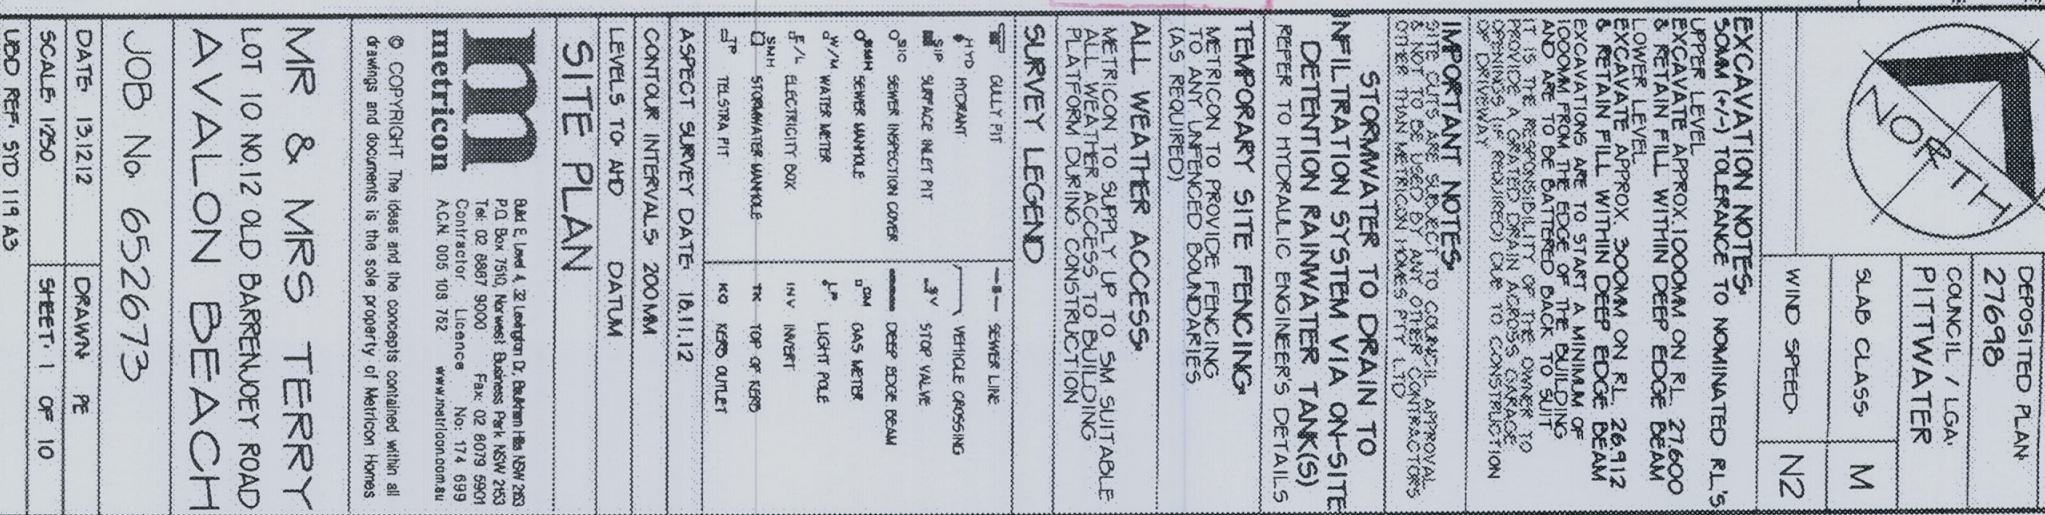 NORTH
DEPOSITED PLAN:
27698
COUNCIL / LGA:
PITTWATER
SLAB CLASS: M
WIND SPEED: N2
EXCAVATION NOTES:
50MM (+/-) TOLERANCE TO NOMINATED RL'S
UPPER LEVEL
EXCAVATE APPROX.1000MM ON RL. 27.600
& RETAIN FILL WITHIN DEEP EDGE BEAM
LOWER LEVEL
EXCAVATE APPROX. 300MM ON RL. 26.912
& RETAIN FILL WITHIN DEEP EDGE BEAM
EXCAVATIONS ARE TO START A MINIMUM OF
1000MM FROM THE EDGE OF THE BUILDING
AND ARE TO BE BATTERED BACK TO SUIT
IT IS THE RESPONSIBILITY OF THE OWNER TO
PROVIDE A GRATED DRAIN ACROSS GARAGE
OPENINGS (IF REQUIRED) DUE TO CONSTRUCTION
OF DRIVEWAY
IMPORTANT NOTES:
SITE CUTS ARE SUBJECT TO COUNCIL APPROVAL
& NOT TO BE USED BY ANY OTHER CONTRACTORS
OTHER THAN METRICON HOMES PTY LTD
STORMWATER TO DRAIN TO
INFILTRATION SYSTEM VIA ON-SITE
DETENTION RAINWATER TANK(S)
REFER TO HYDRAULIC ENGINEER'S DETAILS
TEMPORARY SITE FENCING:
METRICON TO PROVIDE FENCING
TO ANY UNFENCED BOUNDARIES
(AS REQUIRED)
ALL WEATHER ACCESS:
METRICON TO SUPPLY UP TO 5M SUITABLE
ALL WEATHER ACCESS TO BUILDING
PLATFORM DURING CONSTRUCTION
SURVEY LEGEND
GULLY PIT
HYD HYDRANT
SIP SURFACE INLET PIT
SIC SEWER INSPECTION COVER
SMH SEWER MANHOLE
W/M WATER METER
E/L ELECTRICITY BOX
SMH STORMWATER MANHOLE
TP TELSTRA PIT
S SEWER LINE
VEHICLE CROSSING
SV STOP VALVE
DEEP EDGE BEAM
GM GAS METER
LP LIGHT POLE
INV INVERT
TK TOP OF KERB
KO KERB OUTLET
ASPECT SURVEY DATE: 16.11.12
CONTOUR INTERVALS: 200MM
LEVELS TO AHD DATUM
SITE PLAN
m
metricon
Build E, Level 4, 32 Lexington Dr. Baulkham Hills NSW 2153
P.O. Box 7510, Norwest Business Park NSW 2153
Tel: 02 8887 9000 Fax: 02 8079 5901
Contractor Licence No: 174 699
A.C.N. 005 108 752 www.metricon.com.au
© COPYRIGHT The ideas and the concepts contained within all
drawings and documents is the sole property of Metricon Homes
MR & MRS TERRY
LOT 10 NO.12 OLD BARRENJOEY ROAD
AVALON BEACH
JOB No. 652673
DATE: 13.12.12 DRAWN: PE
SCALE: 1:250 SHEET: 1 OF 10
UBD REF: SYD 119 A3